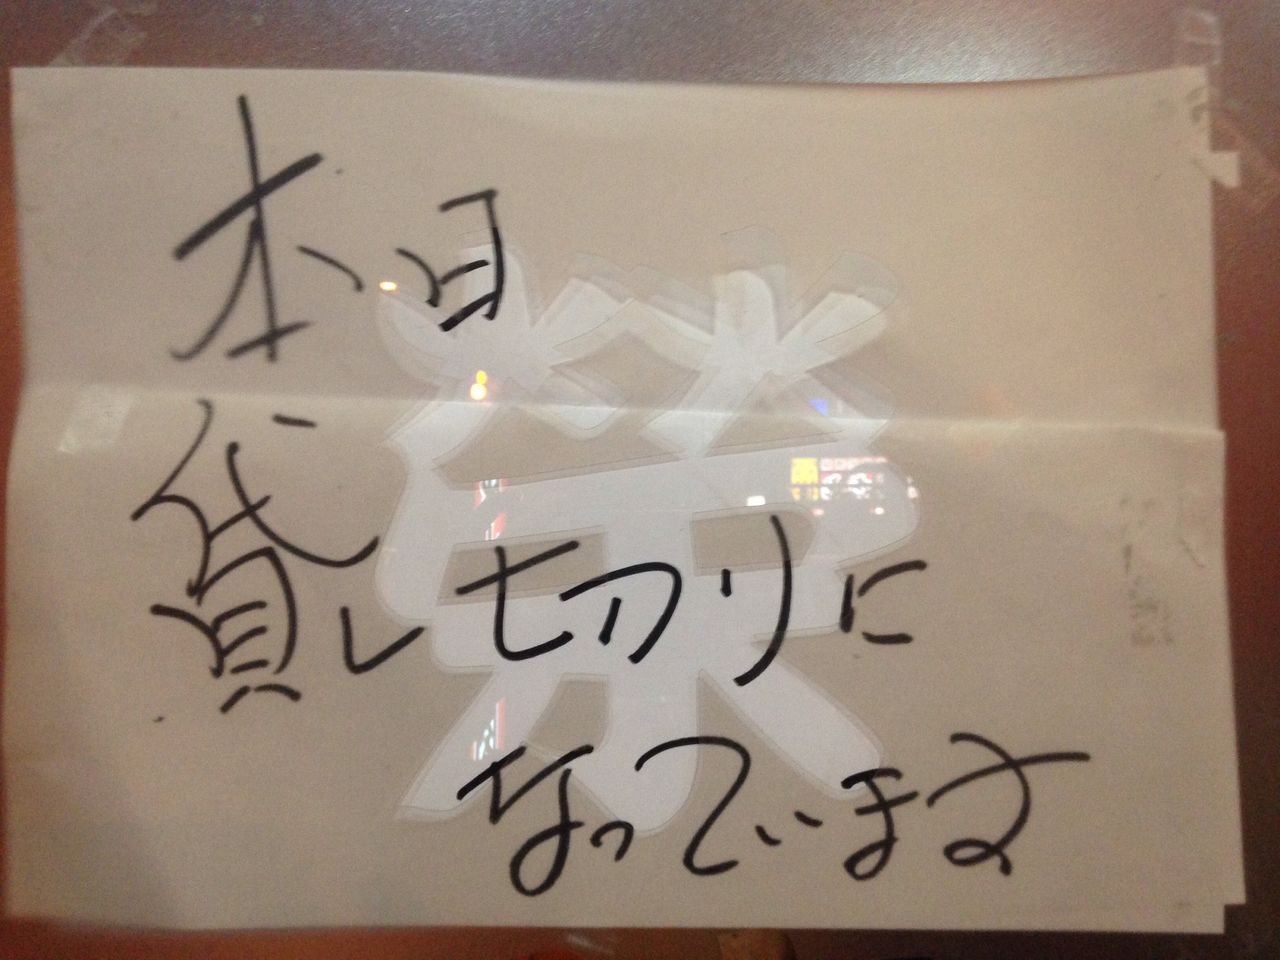 本日
貸し切りに
なっています